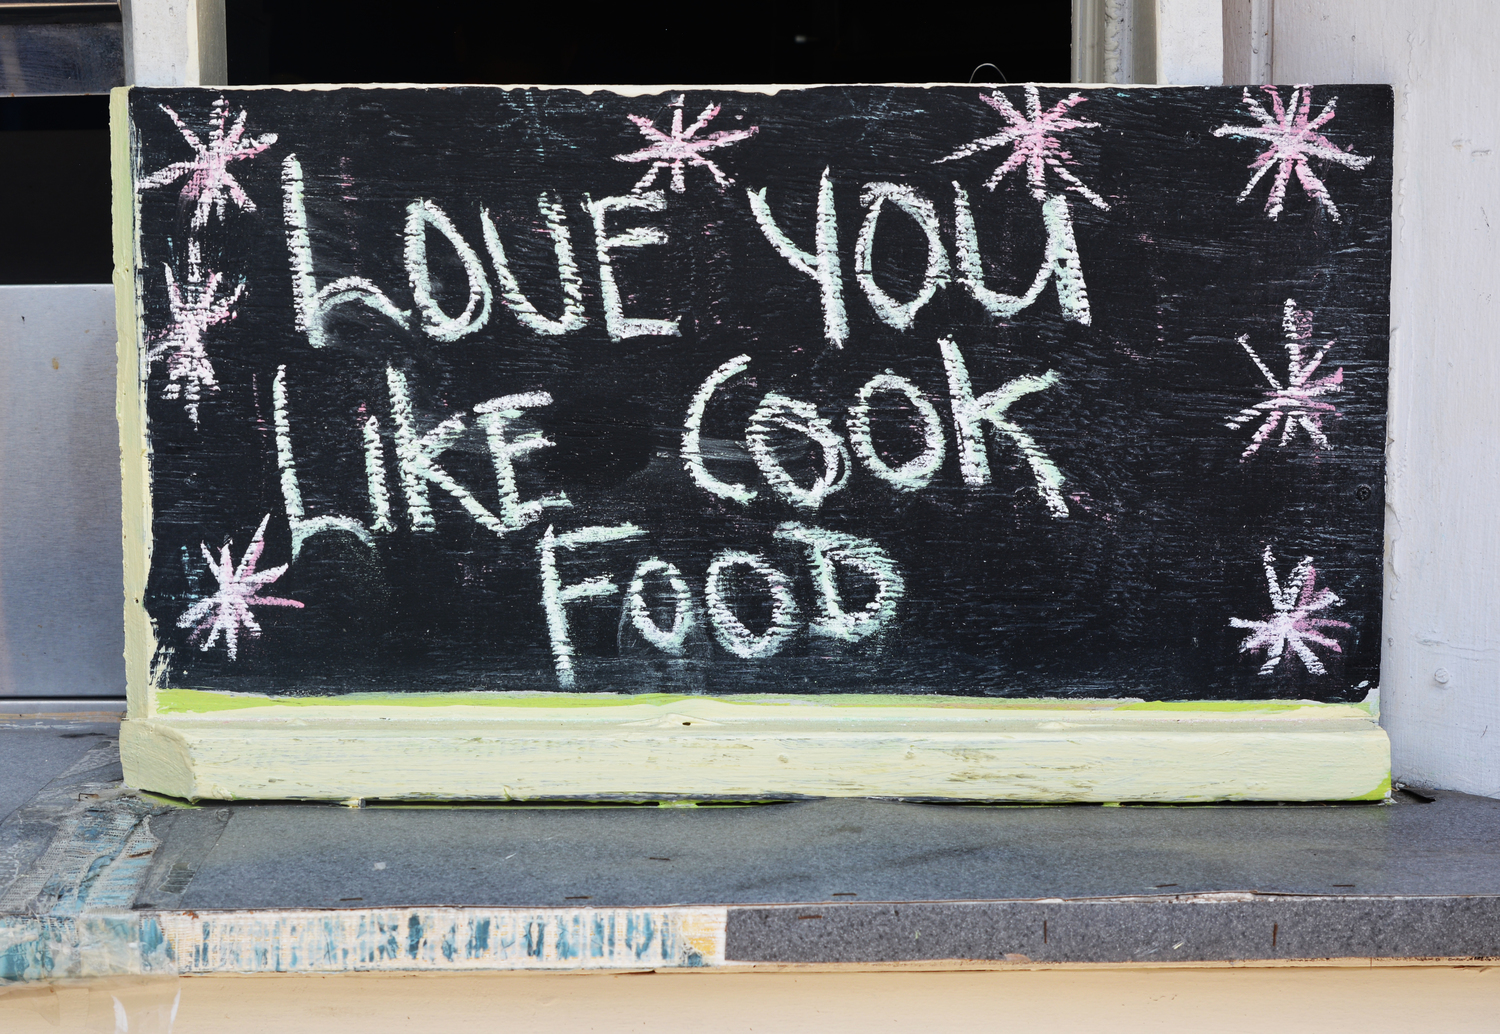 LOVE YOU
LIKE COOK
FOOD